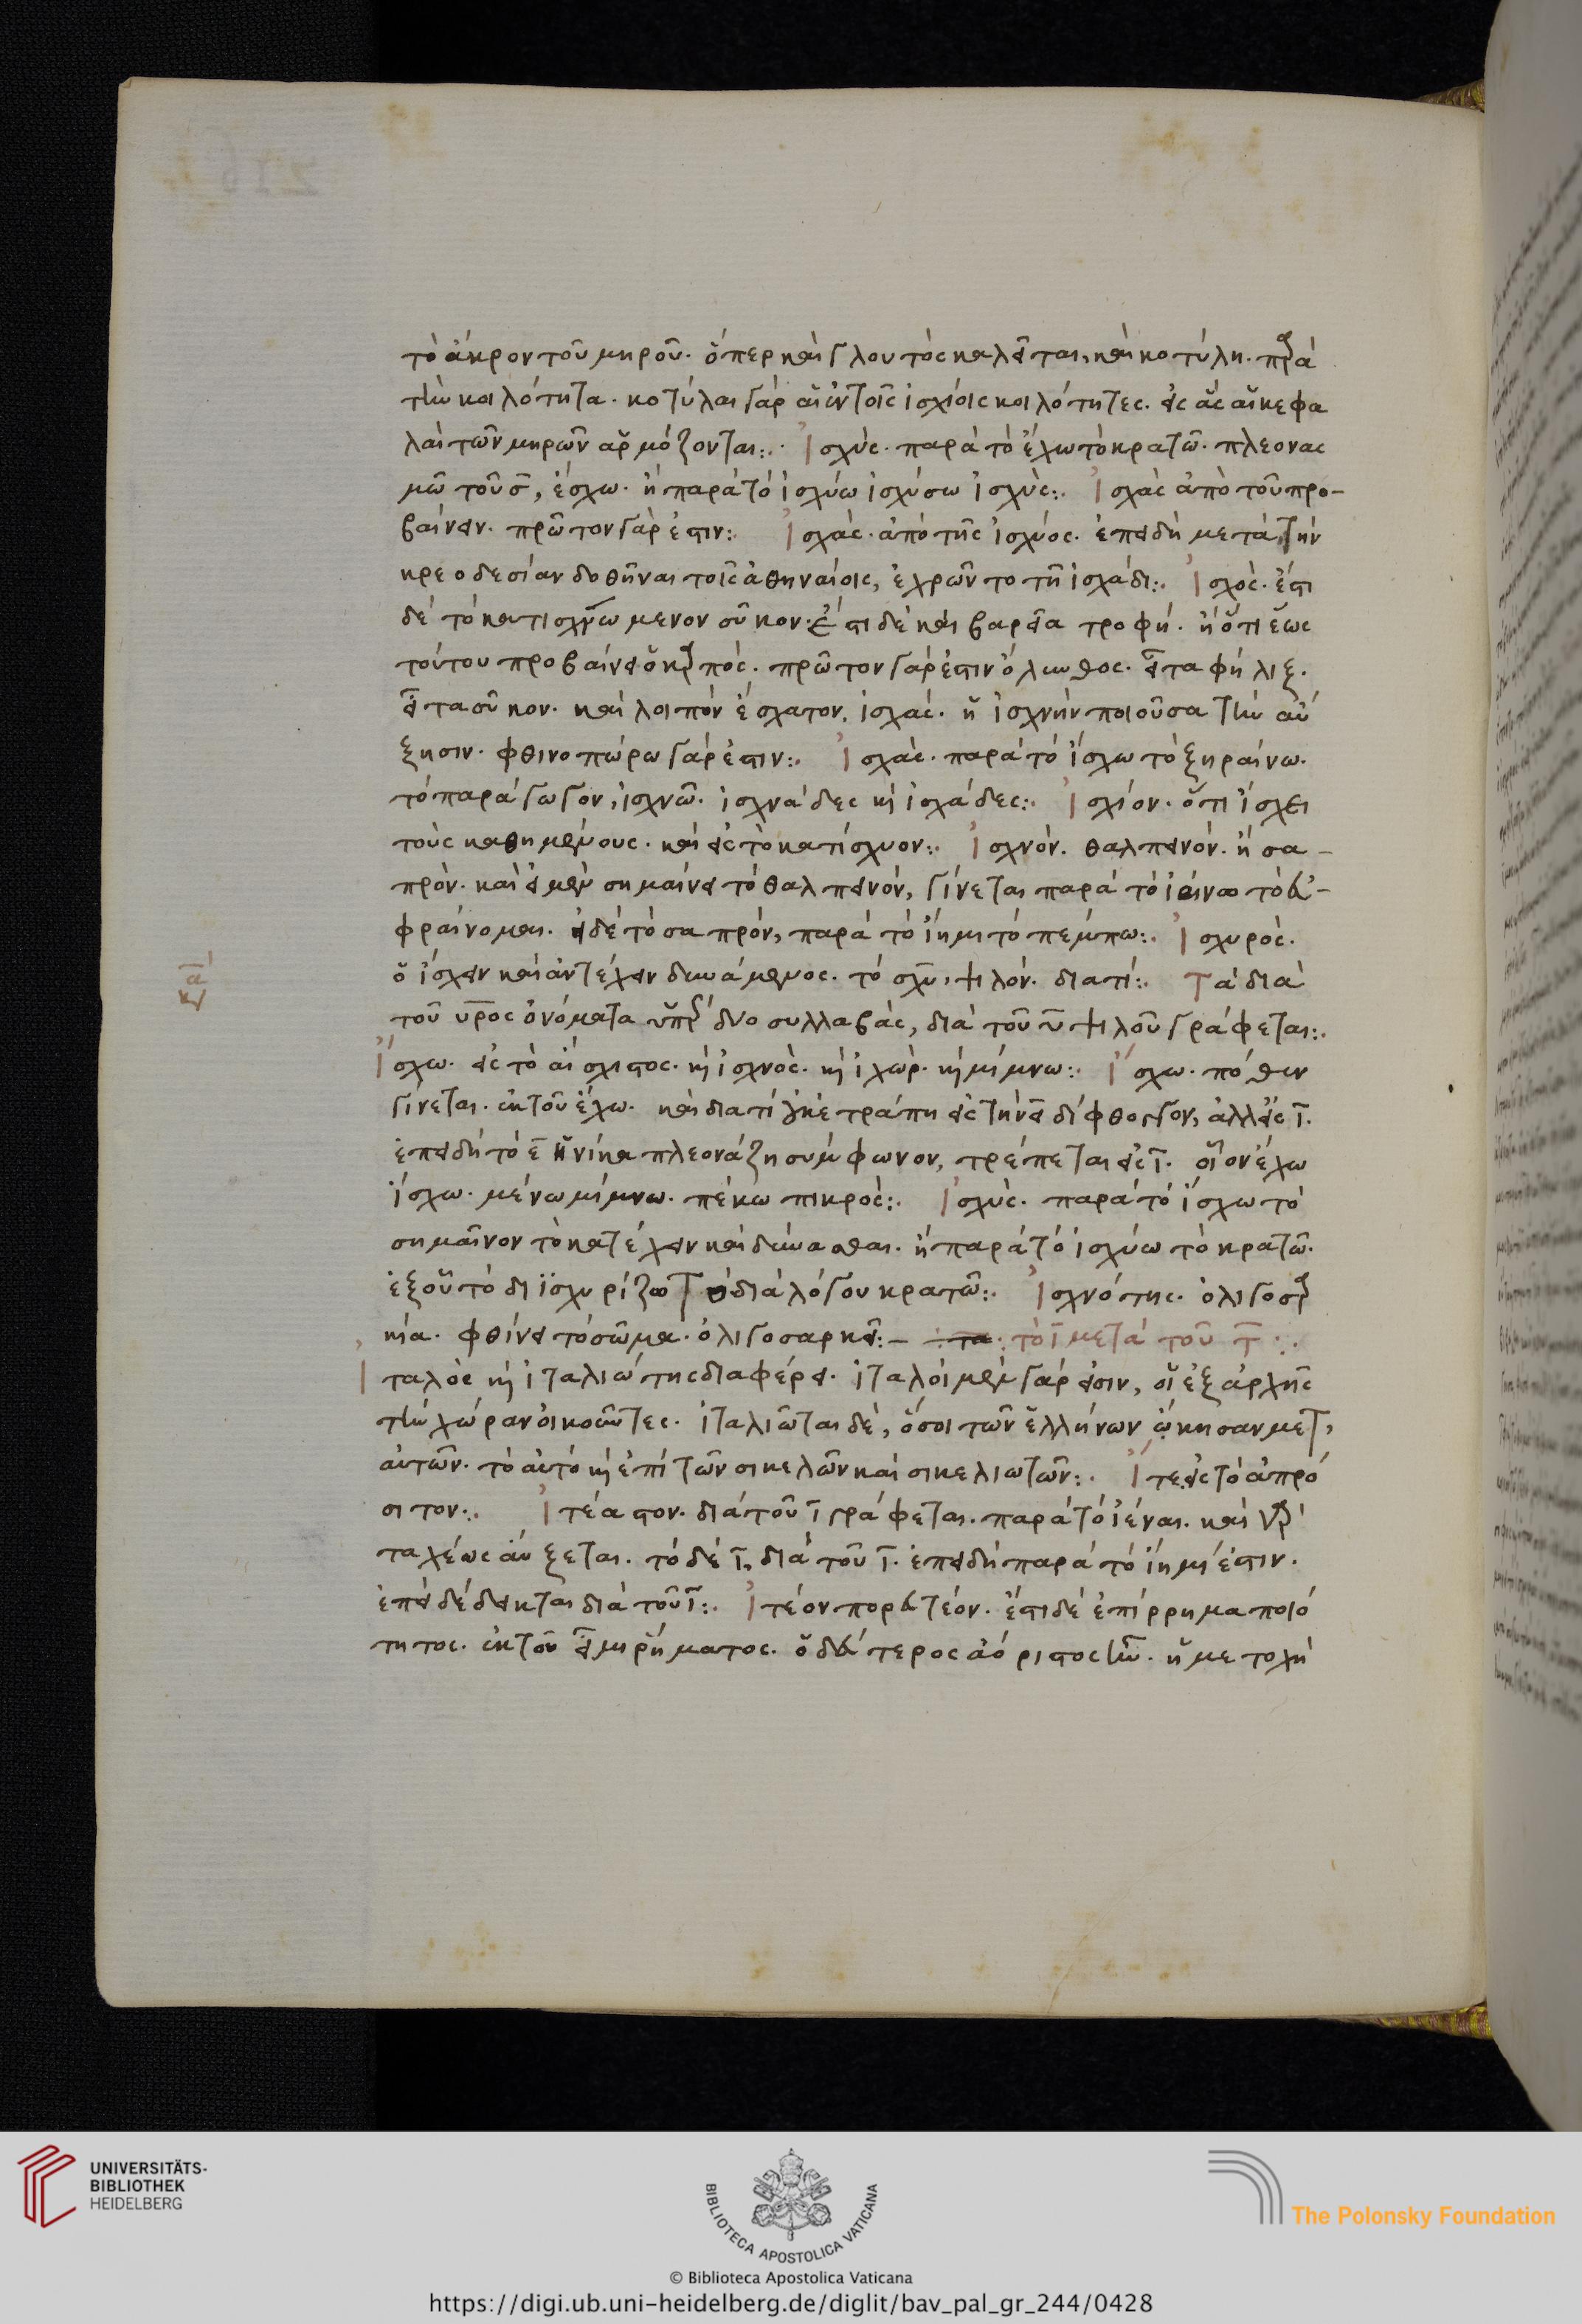 τὸ ἄκρον τοῦ μηροῦ. ὅπερ καὶ γλουτὸς καλεῖται, καὶ κοτύλη. παρὰ
τὴν κοιλότητα. κοτύλαι γὰρ αἱ ἐν τοῖς ἰσχίοις κοιλότητες. εἰς ἃς αἱ κεφα
λαὶ τῶν μηρῶν ἁρμόζονται:. Ἰσχύς. παρὰ τὸ ἔχω τὸ κρατῶ. πλεονας
μῶ τοῦ σ, ἔσχω. ἢ παρὰ τὸ ἰσχύω ἰσχύσω ἰσχύς:. Ἰσχὰς ἀπὸ τοῦ προ-
βαίνειν. πρῶτον γάρ ἐστιν:. Ἰσχάς. ἀπὸ τῆς ἰσχύος. ἐπειδὴ μετὰ τὴν
κρεοδεσίαν δοθῆναι τοῖς ἀθηναίοις, ἐχρῶντο τῆ ἰσχάδι:. Ἰσχός. ἔστι
δὲ τὸ κατισχνωμένον σῦκον. ἔστι δὲ καὶ βαρεῖα τροφή. ἢ ὅτι ἕως
τούτου προβαίνει ὁ καρπός. πρῶτον γάρ ἐστιν ὄλυνθος. εἶτα φήληξ.
εἶτα σῦκον. καὶ λοιπὸν ἔσχατον, ἰσχάς. ἢ ἰσχνὴν ποιοῦσα τὴν αὔ
ξησιν. φθινοπώρω γάρ ἐστιν:. Ἰσχάς. παρὰ τὸ ἴσχω τὸ ξηραίνω.
τὸ παράγωγον, ἰσχνῶ. ἰσχνάδες καὶ ἰσχάδες:. Ἰσχίον. ὅτι ἴσχει
τοὺς καθημένους. καὶ εἰς τὸ κατίσχυον:. Ἰσχνόν. θαλπεινόν. ἢ σα-
πρόν. καὶ εἰ μὲν σημαίνει τὸ θαλπεινόν, γίνεται παρὰ τὸ ἰαίνω τὸ εὐ-
φραίνομαι. εἰ δὲ τὸ σαπρόν, παρὰ τὸ ἵημι τὸ πέμπω:. Ἰσχυρός.
ὁ ἴσχειν καὶ ἀντέχειν δυνάμενος. τὸ σχυ, ψιλόν. διατί:. Τὰ διὰ
τοῦ υρος ὀνόματα ὑπὲρ δύο συλλαβάς, διὰ τοῦ υ ψιλοῦ γράφεται:.
Ἴσχω. εἰς τὸ αἴσχιστος. καὶ ἰσχνός. καὶ ἰχώρ. καὶ μίμνω:. Ἴσχω. πόθεν
γίνεται. ἐκ τοῦ ἔχω. καὶ διατί οὐκ ἐτράπη εἰς τὴν ει δίφθογγον, ἀλλ' εἰς ι.
ἐπειδὴ τὸ ε ἡνίκα πλεονάζη σύμφωνον, τρέπεται εἰς ι. οἷον ἔχω
ἴσχω. μένω μίμνω. πέκω πικρός:. Ἰσχύς. παρὰ τὸ ἴσχω τὸ
σημαῖνον τὸ κατέχειν καὶ δύνασθαι. ἢ παρὰ τὸ ἰσχύω τὸ κρατῶ.
ἐξ οὗ τὸ διϊσχυρίζω τὸ διὰ λόγου κρατῶ:. Ἰσχνότης. ὀλιγοσαρ
κία. φθίνει τὸ σῶμα. ὀλιγοσαρκεῖ:– τὸ ι μετὰ τοῦ τ:.
Ἰταλὸς καὶ ἰταλιώτης διαφέρει. ἰταλοὶ μὲν γάρ εἰσιν, οἱ ἐξ ἀρχῆς
τὴν χώραν οἰκοῦντες. ἰταλιῶται δὲ, ὅσοι τῶν ἑλλήνων ᾤκησαν μετ'
αὐτῶν. τὸ αὐτὸ καὶ ἐπὶ τῶν σικελῶν καὶ σικελιωτῶν:. Ἴτε. εἰς τὸ ἀπρό
σιτον:. Ἰτέα στον. διὰ τοῦ ι γράφεται. παρὰ τὸ ἰέναι. καὶ γὰρ
ταχέως αὔξεται. τὸ δὲ ι, διὰ τοῦ ι. ἐπειδὴ παρὰ τὸ ἵημί ἐστιν.
ἐπεὶ δέδεικται διὰ τοῦ ι:. Ἰτέον πορευτέον. ἔστι δὲ ἐπίρρημα ποιό
τητος. ἐκ τοῦ εἶμι ῥήματος. ὁ δεύτερος ἀόριστος ἶον. ἡ μετοχὴ
UNIVERSITÄTS-
BIBLIOTHEK
HEIDELBERG
BIBLIOTECA APOSTOLICA VATICANA
The Polonsky Foundation
© Biblioteca Apostolica Vaticana
https://digi.ub.uni-heidelberg.de/diglit/bav_pal_gr_244/0428